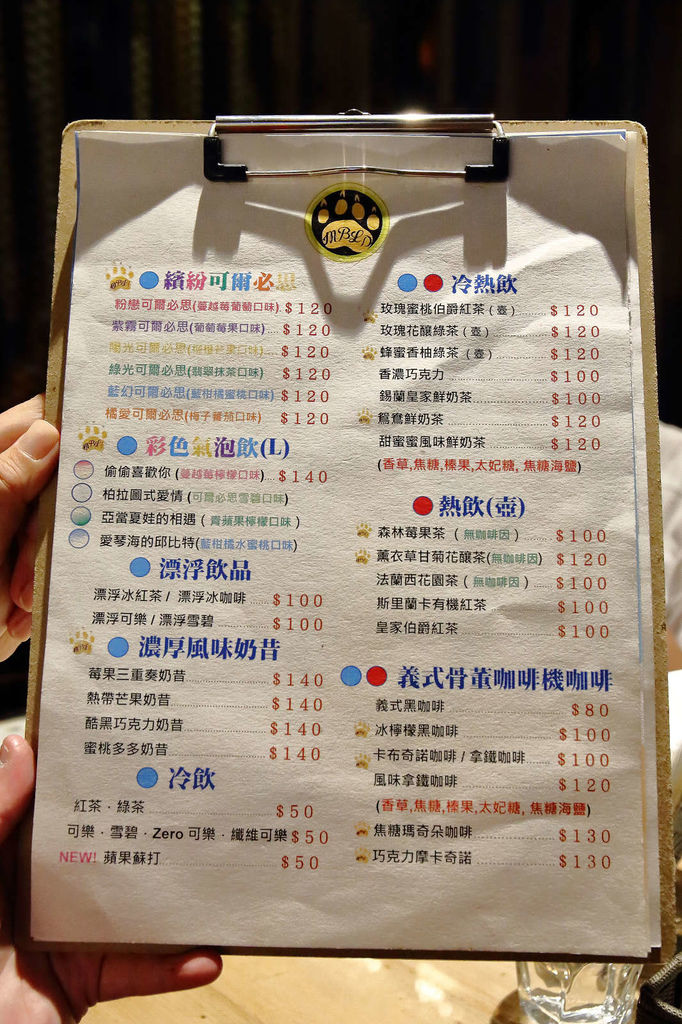 MBLD
繽紛可爾必思
粉戀可爾必思(蔓越莓葡萄口味) $120
紫霧可爾必思(葡萄莓果口味) $120
陽光可爾必思(檸檬芒果口味) $120
綠光可爾必思(翡翠抹茶口味) $120
藍幻可爾必思(藍柑橘蜜桃口味) $120
橘愛可爾必思(梅子蕃茄口味) $120
彩色氣泡飲(L)
偷偷喜歡你 (蔓越莓檸檬口味) $140
柏拉圖式愛情 (可爾必思雪碧口味)
亞當夏娃的相遇 ( 青蘋果檸檬口味 )
愛琴海的邱比特(藍柑橘水蜜桃口味)
漂浮飲品
漂浮冰紅茶 / 漂浮冰咖啡 $100
漂浮可樂 / 漂浮雪碧 $100
濃厚風味奶昔
莓果三重奏奶昔 $140
熱帶芒果奶昔 $140
酷黑巧克力奶昔 $140
蜜桃多多奶昔 $140
冷飲
紅茶 · 綠茶 $50
可樂 · 雪碧 · Zero 可樂 · 纖維可樂 $50
NEW! 蘋果蘇打 $50
冷熱飲
玫瑰蜜桃伯爵紅茶 ( 壺 ) $120
玫瑰花釀綠茶 ( 壺 ) $120
蜂蜜香柚綠茶 ( 壺 ) $120
香濃巧克力 $100
錫蘭皇家鮮奶茶 $100
鴛鴦鮮奶茶 $120
甜蜜蜜風味鮮奶茶 $120
(香草,焦糖,榛果,太妃糖, 焦糖海鹽)
熱飲(壺)
森林莓果茶 ( 無咖啡因 ) $100
薰衣草甘菊花釀茶(無咖啡因) $120
法蘭西花園茶 ( 無咖啡因 ) $100
斯里蘭卡有機紅茶 $100
皇家伯爵紅茶 $100
義式骨董咖啡機咖啡
義式黑咖啡 $80
冰檸檬黑咖啡 $100
卡布奇諾咖啡 / 拿鐵咖啡 $100
風味拿鐵咖啡 $120
(香草,焦糖,榛果,太妃糖, 焦糖海鹽)
焦糖瑪奇朵咖啡 $130
巧克力摩卡奇諾 $130